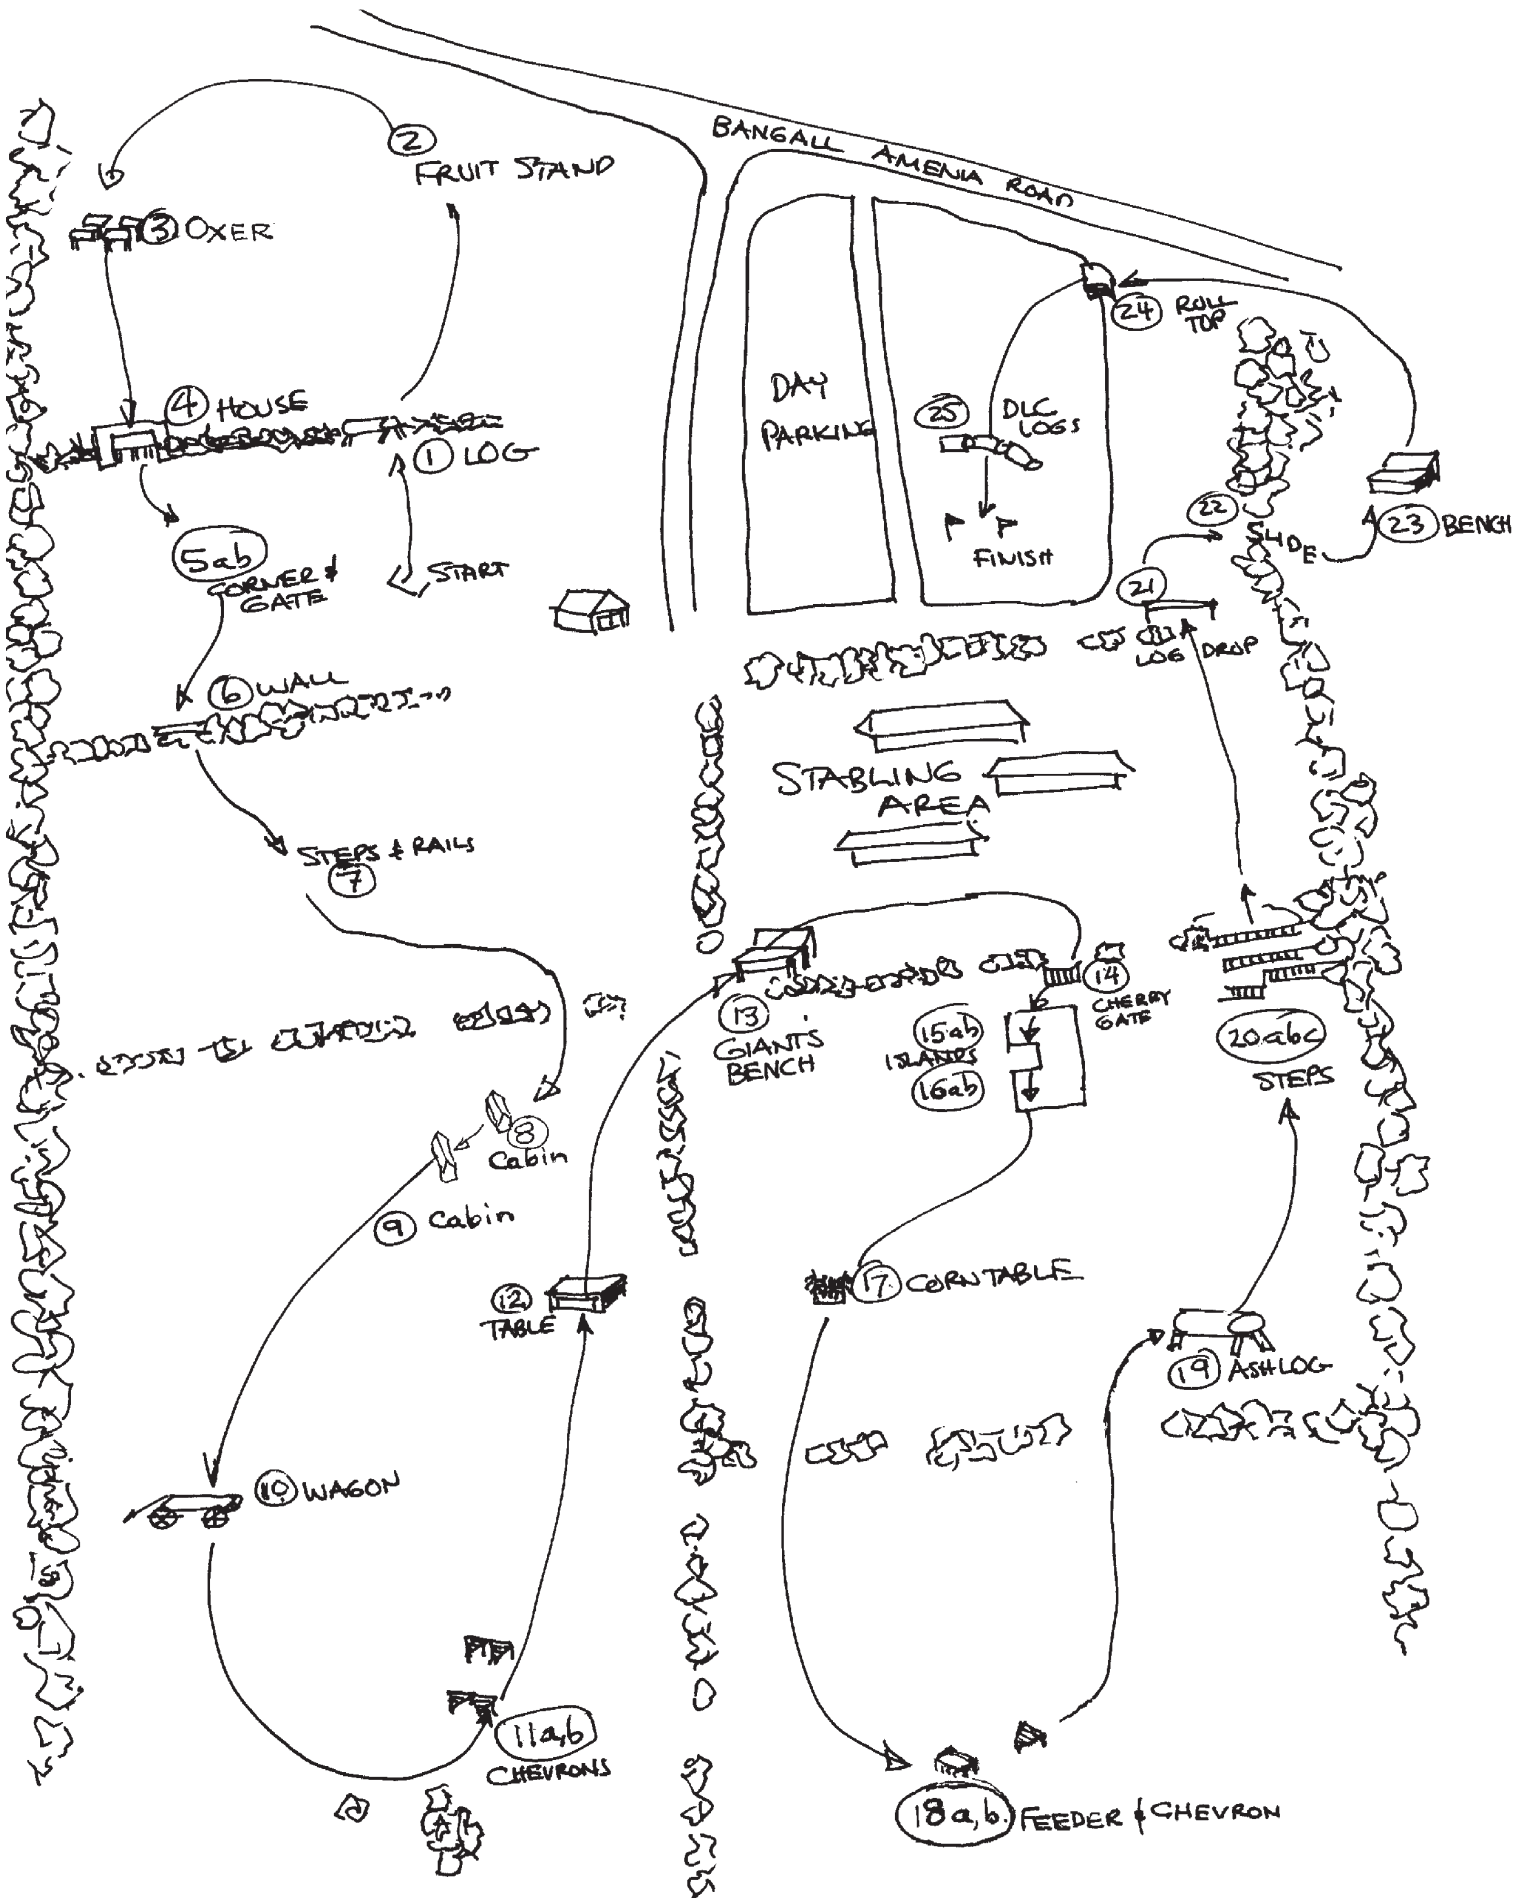 BANGALL AMENIA ROAD
2
FRUIT STAND
3 OXER
4 HOUSE
1 LOG
5ab
CORNER &
GATE
START
6 WALL
STEPS & RAILS
7
8
Cabin
9 Cabin
10 WAGON
11a,b
CHEVRONS
12
TABLE
13
GIANT'S
BENCH
14
CHERRY
GATE
15ab
ISLANDS
16ab
17 CORN TABLE
18a,b. FEEDER & CHEVRON
19 ASH LOG
20abc
STEPS
21
LOG DROP
22
SLIDE
23 BENCH
24 ROLL
TOP
25 DLC
LOGS
FINISH
DAY
PARKING
STABLING
AREA